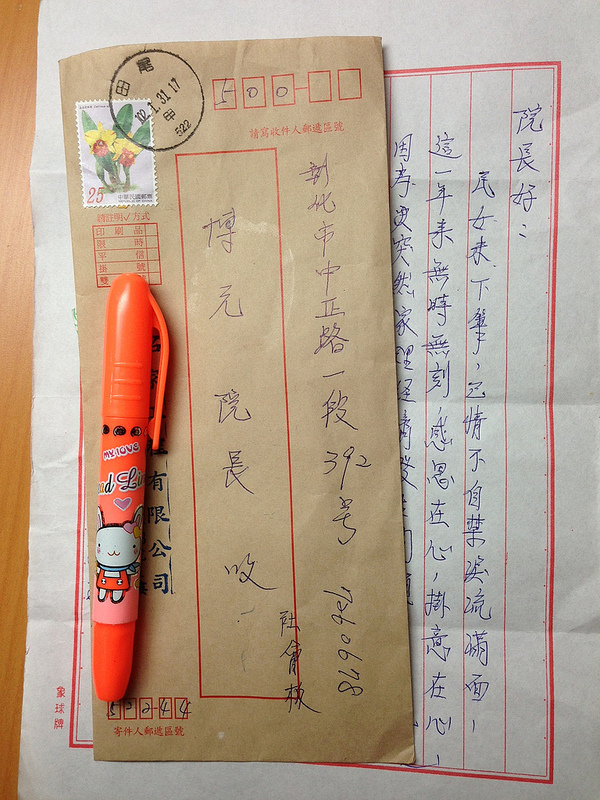 田尾
31.17
甲
522
25
中華民國郵票
500
請寫收件人郵遞區號
請註明✓方式
印刷品
限時
平信
掛號
雙
彰化市中正路一段392号
博元院長收
社會
有限公司
MY LOVE
52244
寄件人郵遞區號
院長好：
民女未下筆，已情不自禁淚流滿面，
這一年來無時無刻，感恩在心，掛意在心，
突然家裡經濟發
象球牌